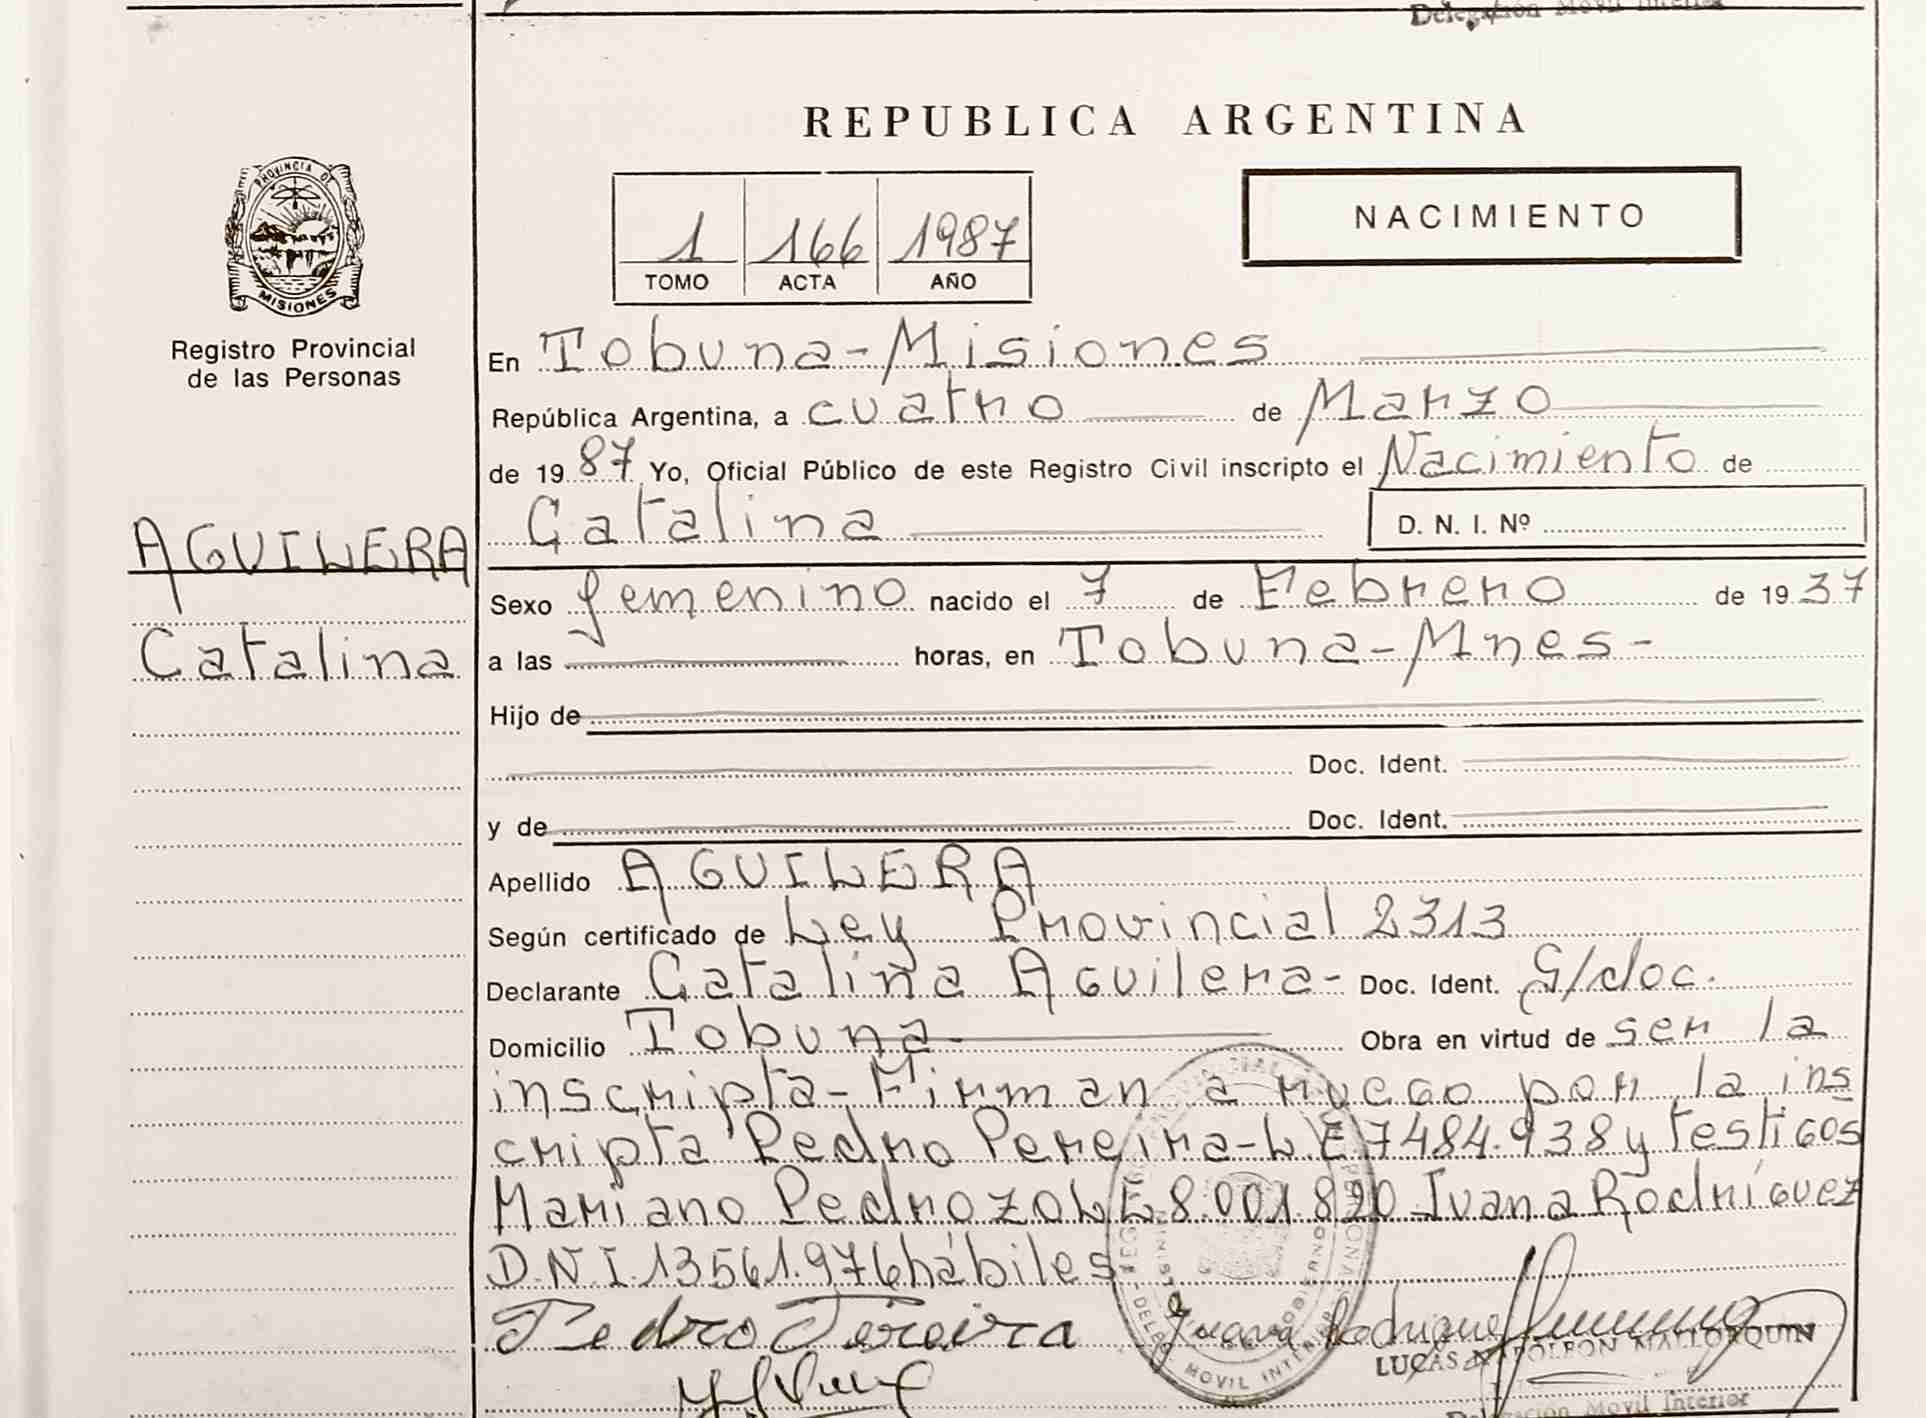 Delegación Movil Interior
REPUBLICA ARGENTINA
PROVINCIA DE
MISIONES
Registro Provincial
de las Personas
1 166 1987
TOMO ACTA AÑO
NACIMIENTO
En Tobuna-Misiones
República Argentina, a cuatro de Marzo
de 1987 Yo, Oficial Público de este Registro Civil inscripto el Nacimiento de
Catalina D. N. I. Nº
AGUILERA
Catalina
Sexo femenino nacido el 7 de Febrero de 1937
a las horas, en Tobuna-Mnes-
Hijo de
Doc. Ident.
y de Doc. Ident.
Apellido AGUILERA
Según certificado de Ley Provincial 2313
Declarante Catalina Aguilera- Doc. Ident. S/doc.
Domicilio Tobuna- Obra en virtud de ser la
inscripta-Firman a ruego por la ins
cripta Pedro Pereira-L.E 7484.938 y testigos
Mariano Pedrozo L E 8.001.820 Juana Rodríguez
D.N.I.13561.976 hábiles-
Pedro Pereira Juana Rodrigue
LUCAS NAPOLEON MALLORQUIN
Delegación Movil Interior